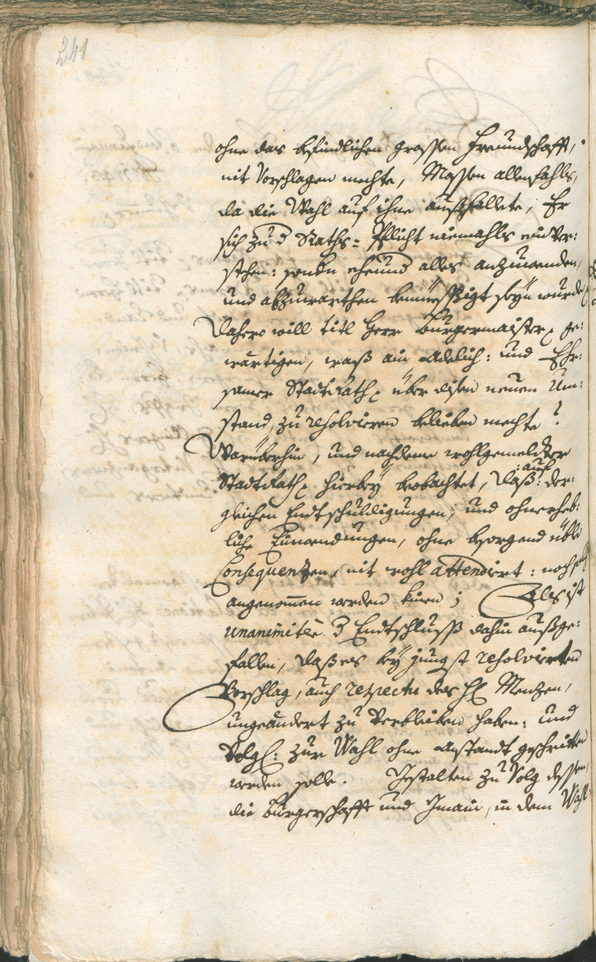 241
ohne das befindlichen grossen Freundschafft,
nit Vorschlagen mechte, Massen allenfahls,
da die Wahl auf ihne ausfallete, Er
sich zu d Raths=Pflicht niemahls einver:
stehen: sondn ehenund alles anzuwenden,
und abzuwarthen bemüessigt seyn wurde
Dahero will titl Herr Burgermaister ge:
wärtigen, waß ain Adelich: und Ehr:
samer Stadtrath über disen neuen Um:
stand, zu resolvieren belieben mechte?
Warüberhin, und nachdeme wohlgemelter
Stadtrath hierbey beobachtet, daß auch der:
gleichen Endtschuldigungen, und ohnerheb:
liche Einwendungen, ohne besorgend üble
Consequentzen, nit wohl attendirt: noch
angenommen werden künen; Als ist
unanimitèr d Endtschluss dahin aussge:
fallen, daß es bey jungst resolvierten
Vorschlag, auch respectu des H Menzen,
ungeändert zu verbleiben haben: und
volgl: zur Wahl ohne anstandt geschritten
werden solle. Gestalten zu Volg dessen,
die Burgerschafft und Gmain, in dem Wahl